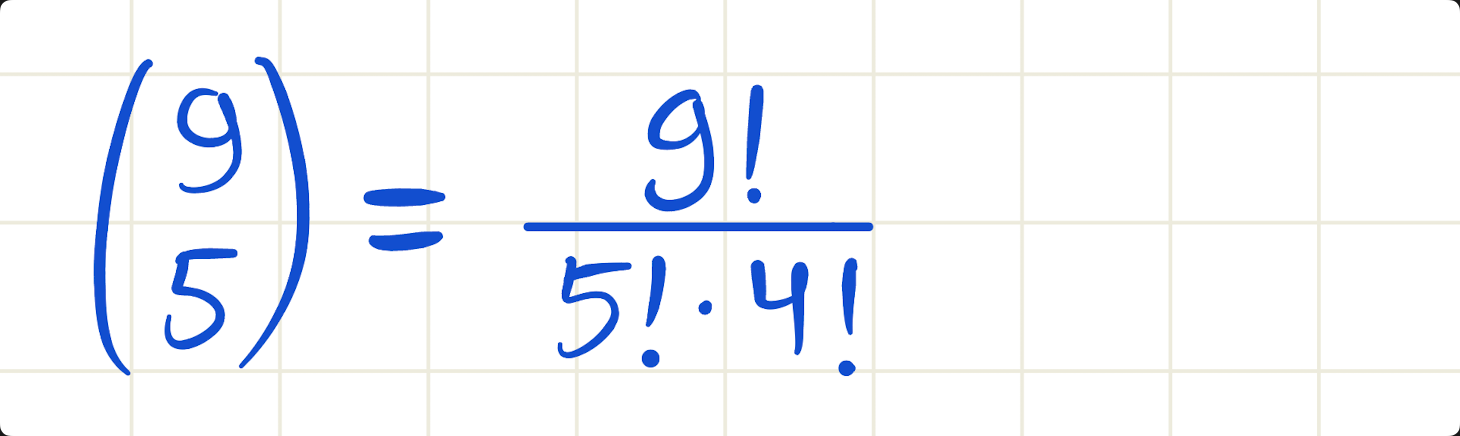 (9 5) = 9! / 5! · 4!